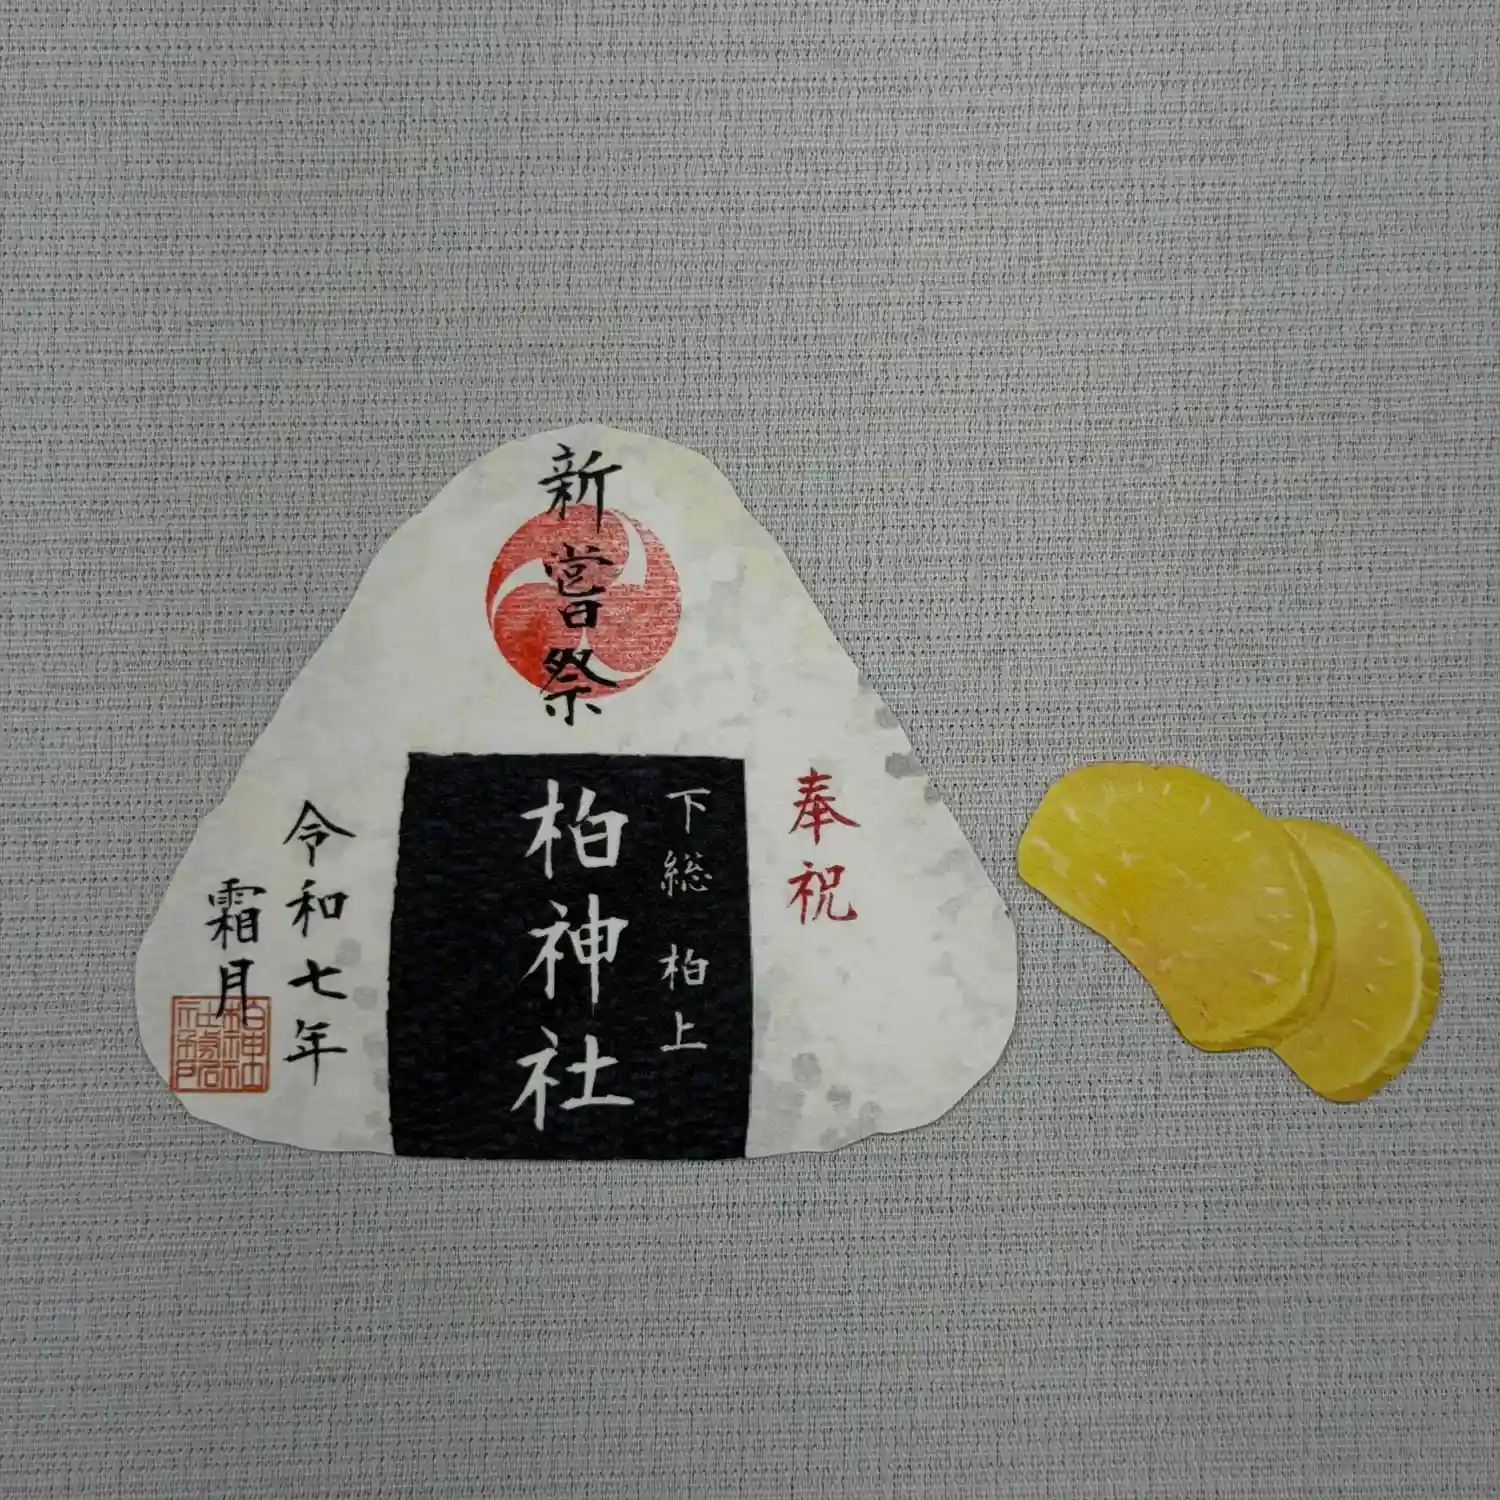 奉祝
新嘗祭
下総 柏上
柏神社
令和七年
霜月
柏神社
社務所印